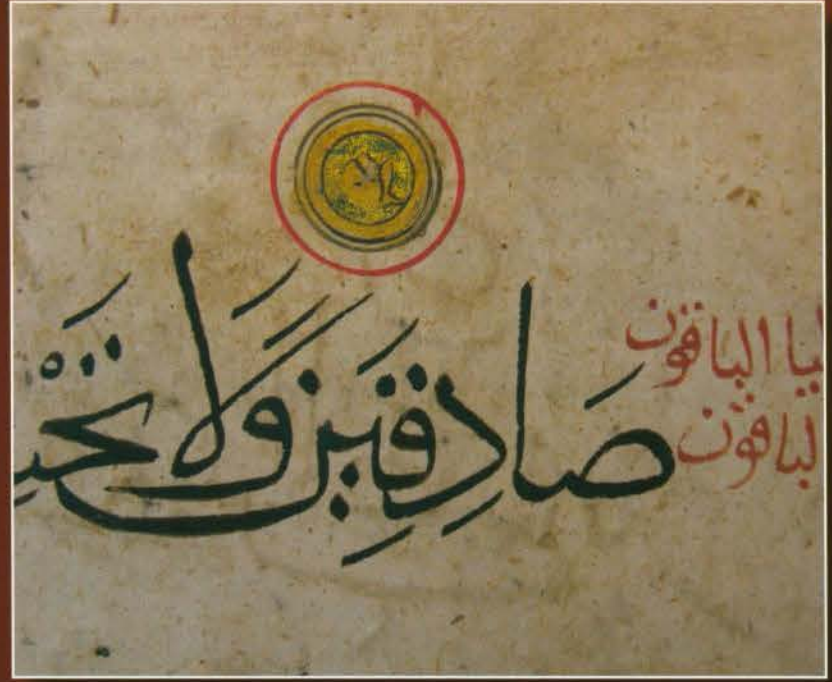 يا الباقون
لباقون
صَادِقِينَ وَلَا تَحْسـ